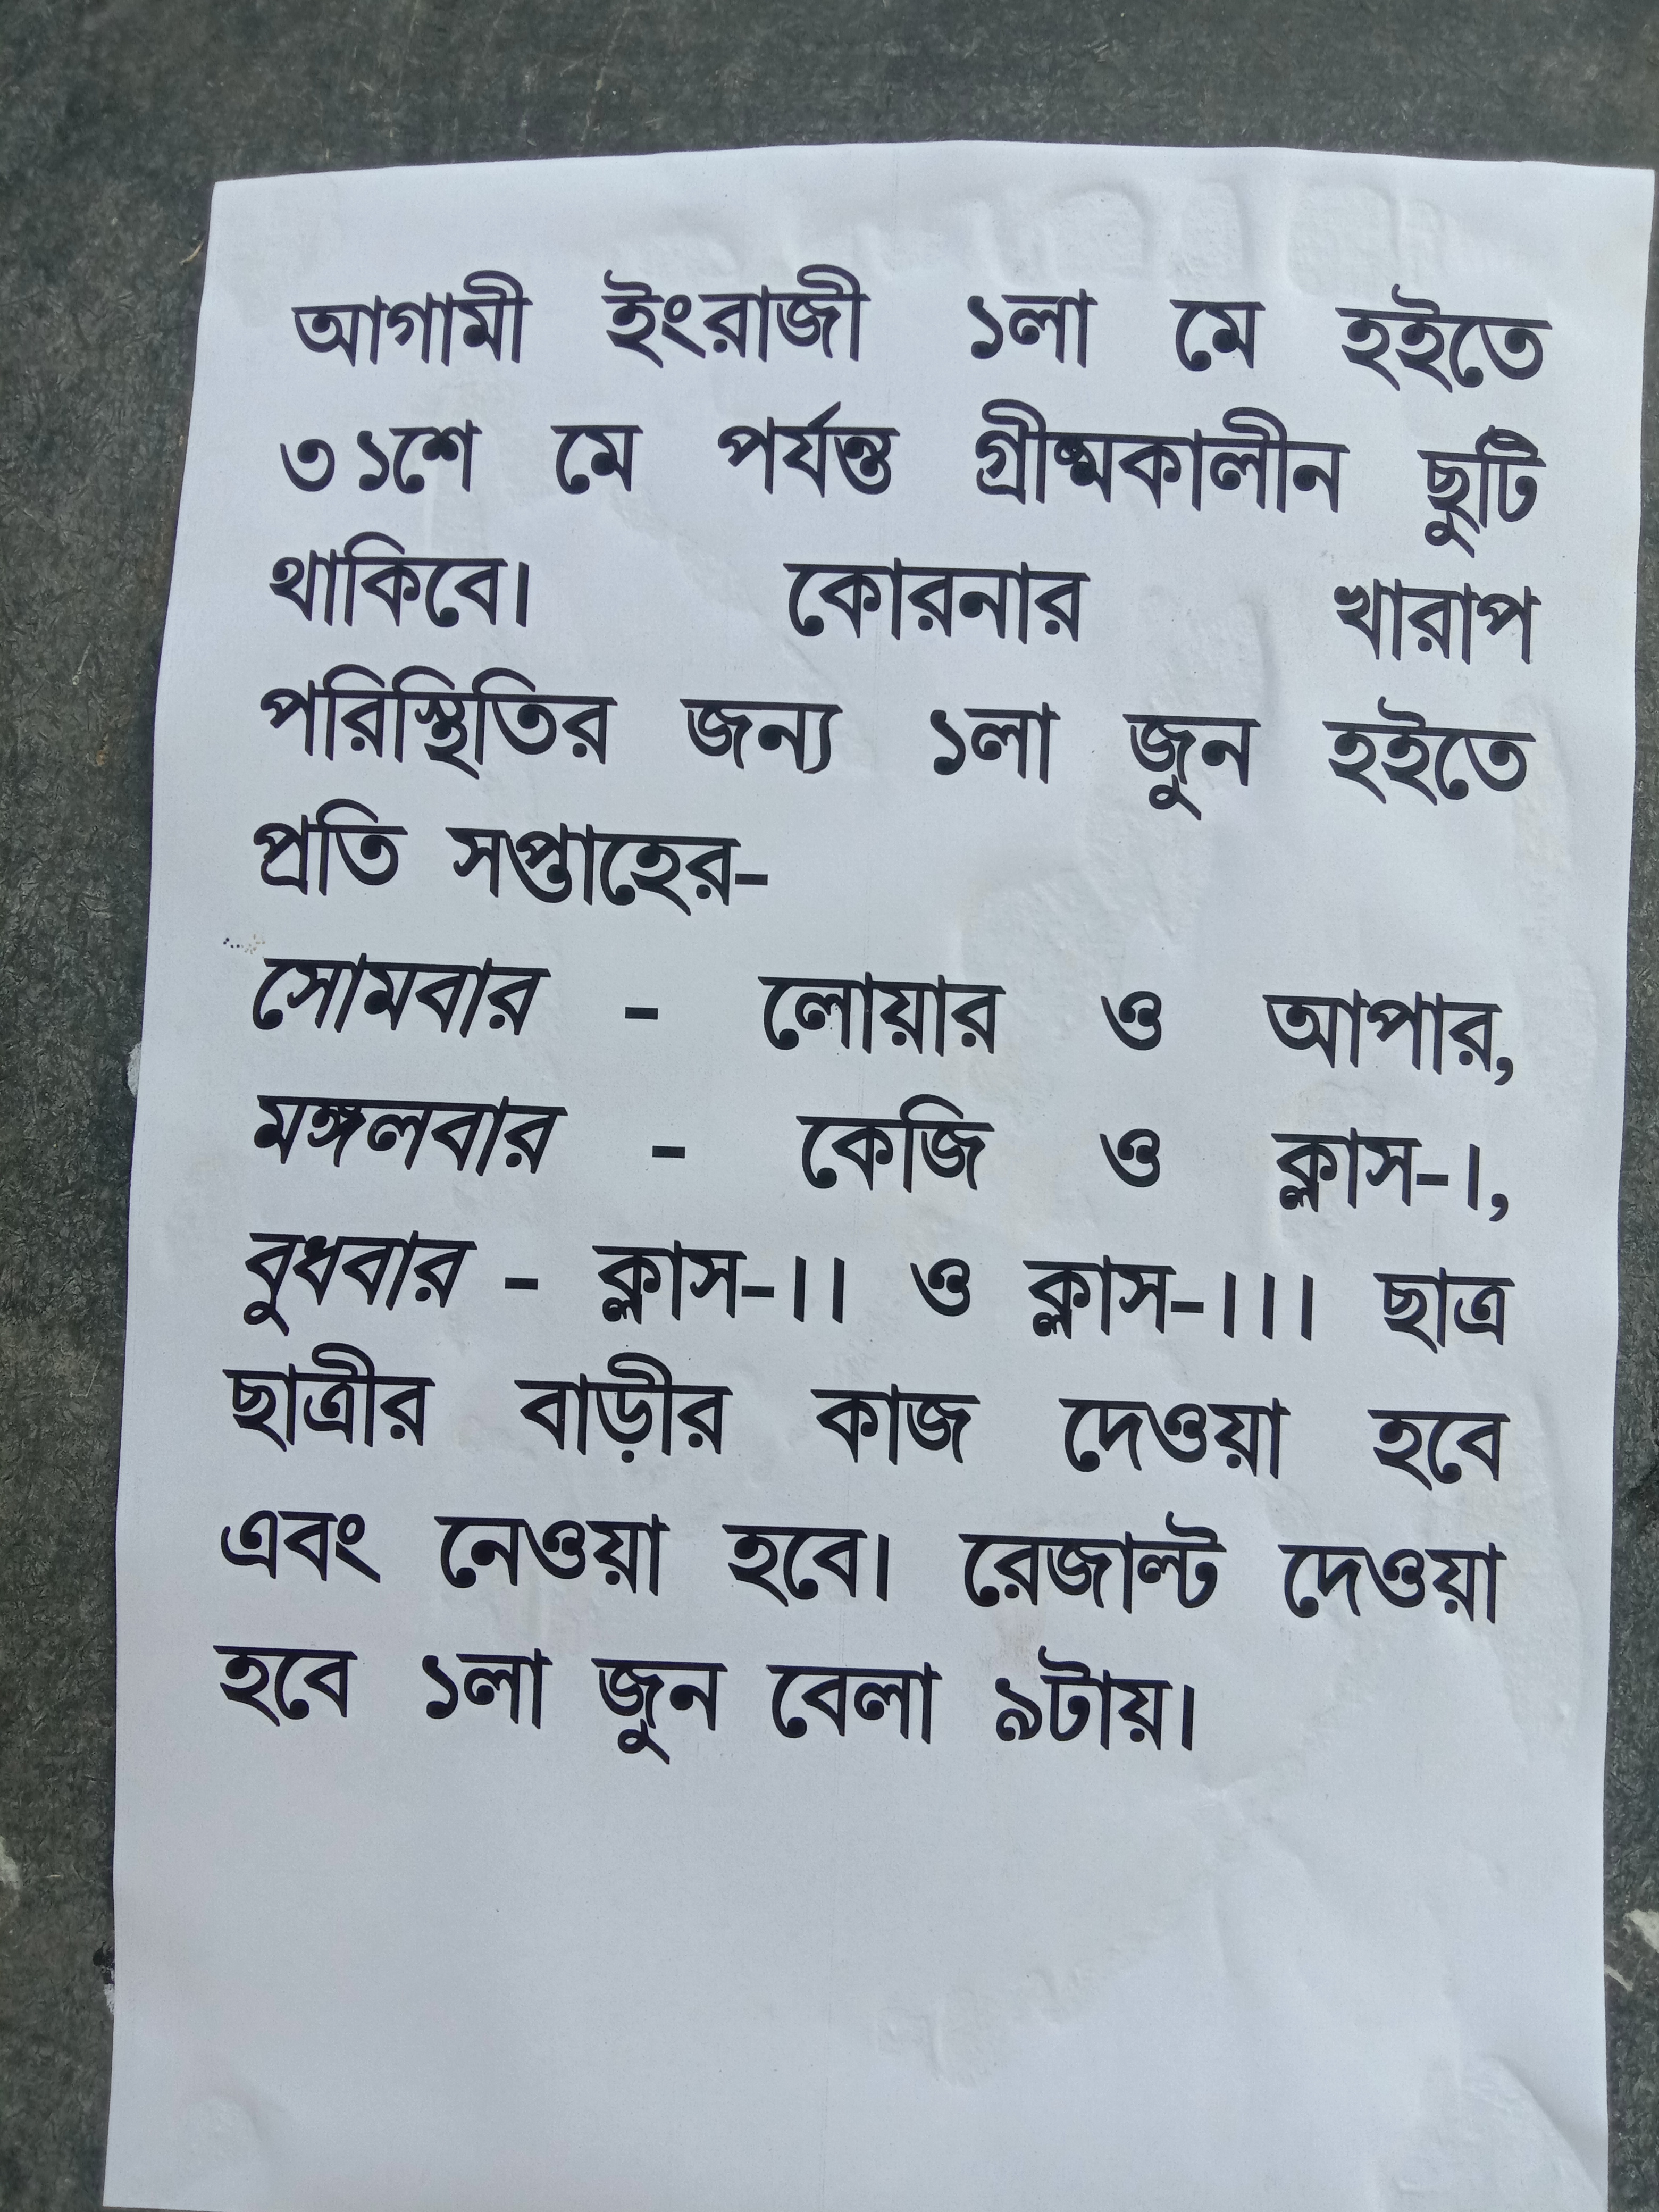 আগামী ইংরাজী ১লা মে হইতে
৩১শে মে পর্যন্ত গ্রীষ্মকালীন ছুটি
থাকিবে। কোরনার খারাপ
পরিস্থিতির জন্য ১লা জুন হইতে
প্রতি সপ্তাহের-
সোমবার - লোয়ার ও আপার,
মঙ্গলবার - কেজি ও ক্লাস-।,
বুধবার - ক্লাস-।। ও ক্লাস-।।। ছাত্র
ছাত্রীর বাড়ীর কাজ দেওয়া হবে
এবং নেওয়া হবে। রেজাল্ট দেওয়া
হবে ১লা জুন বেলা ৯টায়।